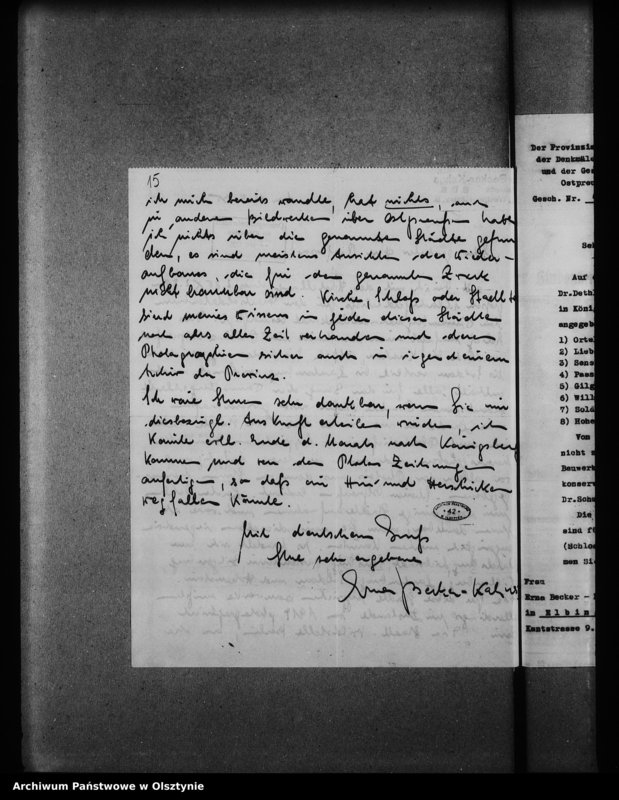 15
ich mich bereits wandte, hat nichts, auch
in anderen Bildwerken über Ostpreußen habe
ich nichts über die genannten Städte gefun
den, es sind meistens Ansichten des Wieder-
aufbaues, die für den genannten Zweck
nicht brauchbar sind. Kirche, Schloß oder Stadtt
sind meines Wissens in jeder dieser Städte
noch aus alter Zeit vorhanden und deren
Photographien sicher auch in irgendeinem
Archiv der Provinz.
Ich wäre Ihnen sehr dankbar, wenn Sie mir
diesbezügl. Auskunft erteilen würden, ich
könnte evtl. Ende d. Monats nach Königsberg
kommen und von den Photos Zeichnungen
anfertigen, so daß ein Hin und Herschicken
wegfallen könnte.
42
Mit deutschem Gruß
Ihre sehr ergebene
Erna Becker-Kahns
Der Provinzia
der Denkmäle
und der Ges
Ostpre
Gesch. Nr.
Seh
Auf
Dr.Deth
in Köni
angegeb
1) Orte
2) Lieb
3) Sens
4) Pass
5) Gilg
6) Will
7) Sold
8) Hohe
Von
nicht
Bauwerk
konser
Dr.Scha
Die
sind fü
(Schlos
men Si
Frau
Erna Becker -
in Elbin
Kantstrasse 9.
Archiwum Państwowe w Olsztynie